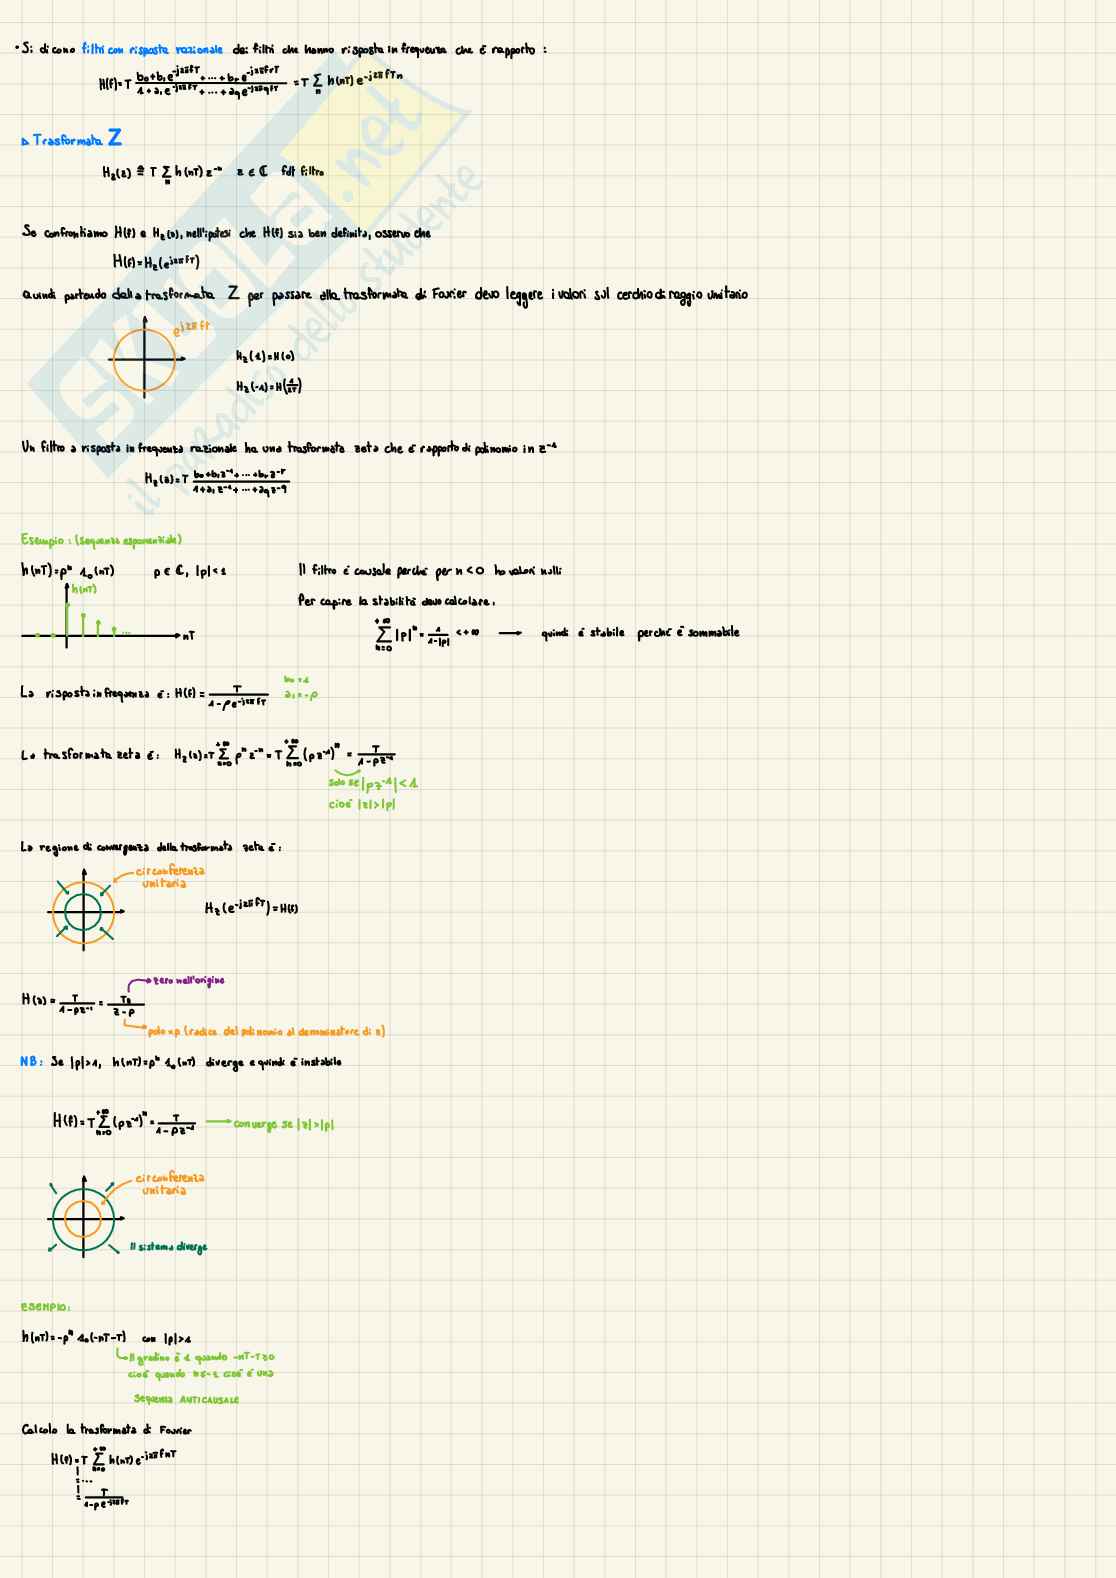 • Si dicono filtri con risposta razionale dei filtri che hanno risposta in frequenza che è rapporto :
H(f) = T (b₀+b₁e^-j2πfT + ... + bᵣe^-j2πfrT) / (1 + a₁e^-j2πfT + ... + a_q e^-j2πqfT) = T Σ_n h(nT) e^-j2πfTn
▷ Trasformata Z
H_z(z) ≜ T Σ_n h(nT) z^-n z ∈ ℂ fdt filtro
Se confrontiamo H(f) e H_z(z), nell'ipotesi che H(f) sia ben definita, osservo che
H(f) = H_z(e^j2πfT)
Quindi partendo dalla trasformata Z per passare alla trasformata di Fourier devo leggere i valori sul cerchio di raggio unitario
e^j2πfT
H_z(1) = H(0)
H_z(-1) = H(1/2T)
Un filtro a risposta in frequenza razionale ha una trasformata zeta che è rapporto di polinomio in z^-1
H_z(z) = T (b₀+b₁z^-1 + ... + bᵣz^-r) / (1+a₁z^-1 + ... + a_q z^-q)
Esempio : (sequenza esponenziale)
h(nT) = pⁿ 1₀(nT) p ∈ ℂ, |p| < 1
h(nT)
...
nT
Il filtro è causale perché per n < 0 ho valori nulli
Per capire la stabilità devo calcolare:
Σ_{n=0}^{+∞} |p|ⁿ = 1/(1-|p|) < +∞ → quindi è stabile perché è sommabile
La risposta in frequenza è : H(f) = T / (1 - p e^-j2πfT)
b₀ = 1
a₁ = -p
La trasformata zeta è: H_z(z) = T Σ_{n=0}^{+∞} pⁿ z^-n = T Σ_{n=0}^{+∞} (p z^-1)ⁿ = T / (1 - p z^-1)
solo se |p z^-1| < 1
cioè |z| > |p|
La regione di convergenza della trasformata zeta è :
circonferenza
unitaria
H_z(e^-j2πfT) = H(f)
zero nell'origine
H(z) = T / (1 - p z^-1) = Tz / (z - p)
polo = p (radice del polinomio al denominatore di z)
NB: Se |p| > 1, h(nT) = pⁿ 1₀(nT) diverge e quindi è instabile
H(f) = T Σ_{n=0}^{+∞} (p z^-1)ⁿ = T / (1 - p z^-1) → converge se |z| > |p|
circonferenza
unitaria
Il sistema diverge
ESEMPIO:
h(nT) = -pⁿ 1₀(-nT-T) con |p| > 1
Il gradino è 1 quando -nT-T≥0
cioè quando n≤-1 cioè è una
sequenza ANTICAUSALE
Calcolo la trasformata di Fourier
H(f) = T Σ_{n=0}^{+∞} h(nT) e^-j2πfnT
= ...
= T / (1 - p e^-j2πfT)
SKUOLA.net
il paradiso dello studente